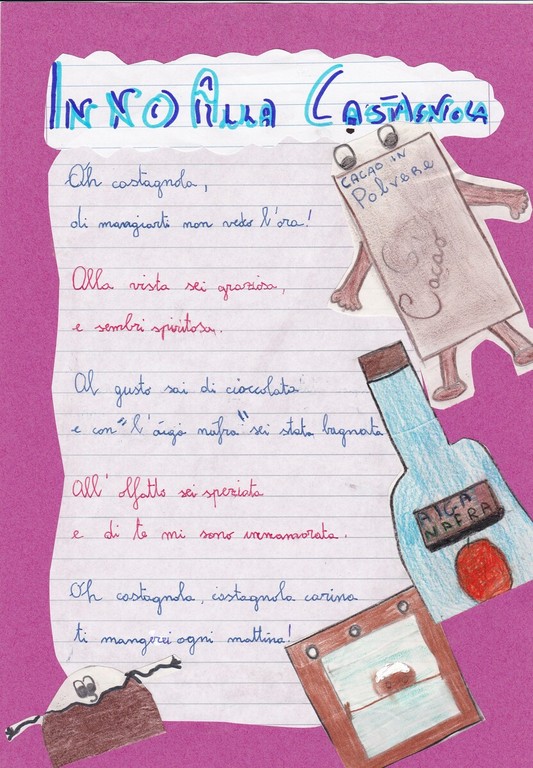 INNO ALLA CASTAGNOLA
Oh castagnola,
di mangiarti non vedo l'ora!
Alla vista sei graziosa,
e sembri spiritosa.
Al gusto sai di cioccolata
e con "l'áiga náfra" sei stata bagnata
All' olfatto sei speziata
e di te mi sono innamorata.
Oh castagnola, castagnola carina
ti mangerei ogni mattina!
CACAO IN
Polvere
Cacao
AIGA
NAFRA